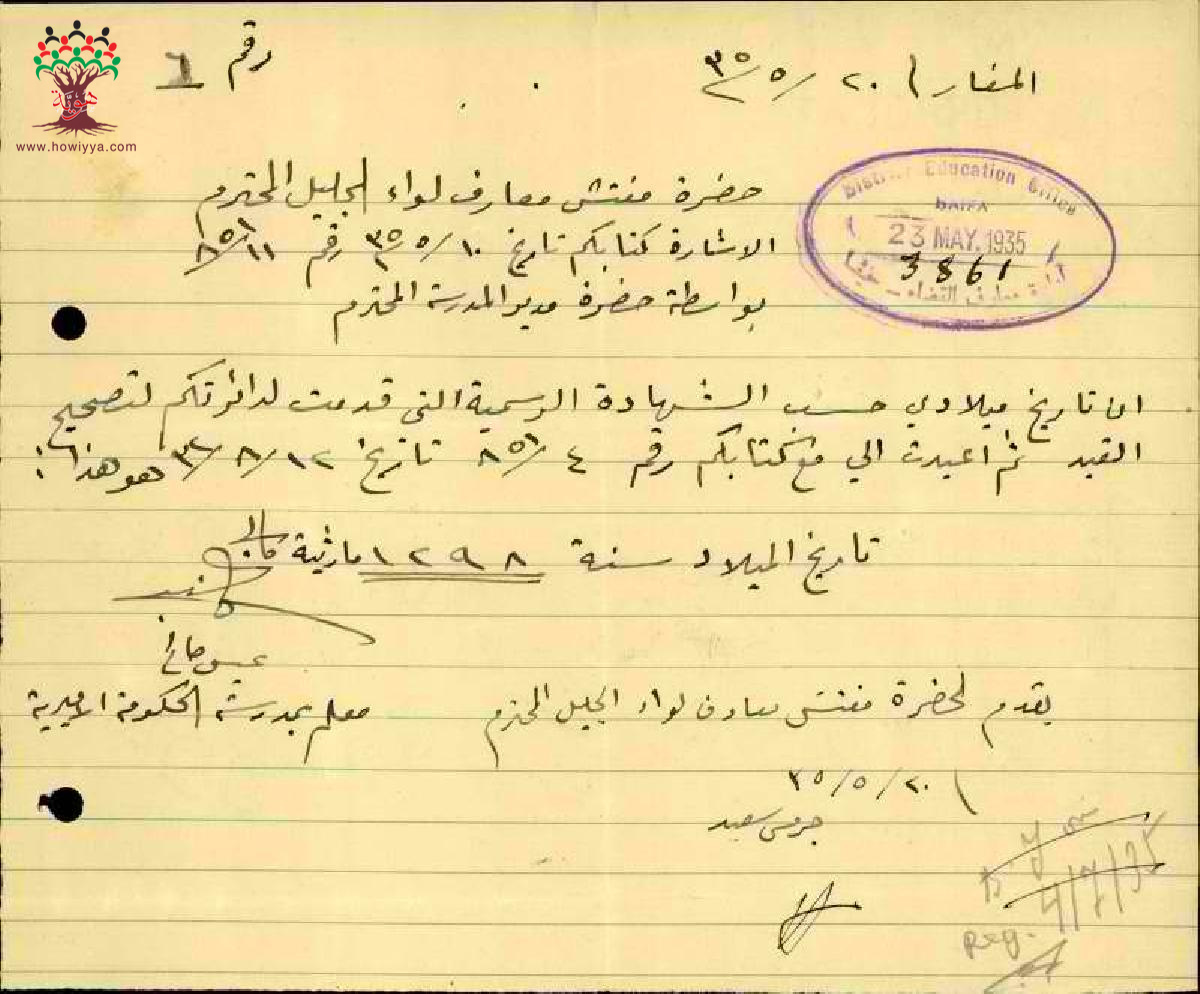 هوية
www.howiyya.com
رقم ٦
المغار / ٢٠/٥/٣٥
District Education Office
HAIFA
23 MAY. 1935
3861
حضرة مفتش معارف لواء الجليل المحترم
الاشارة كتابكم تاريخ ١٠/٥/٣٥ رقم
بواسطة حضرة مدير المدرسة المحترم
ان تاريخ ميلادي حسب الشهادة الرسمية التي قدمت لدائرتكم لتصحيح
القيد ثم اعيدت الي مع كتابكم رقم تاريخ ١٢/٨/٣٢ هو هذا :
تاريخ الميلاد سنة ١٢٩٨ مارثية
معلم بمدرسة الحكومة الاميرية
يقدم لحضرة مفتش معارف لواء الجليل المحترم
٢٠/٥/٣٥
سعيد
4/7/35
Reg.